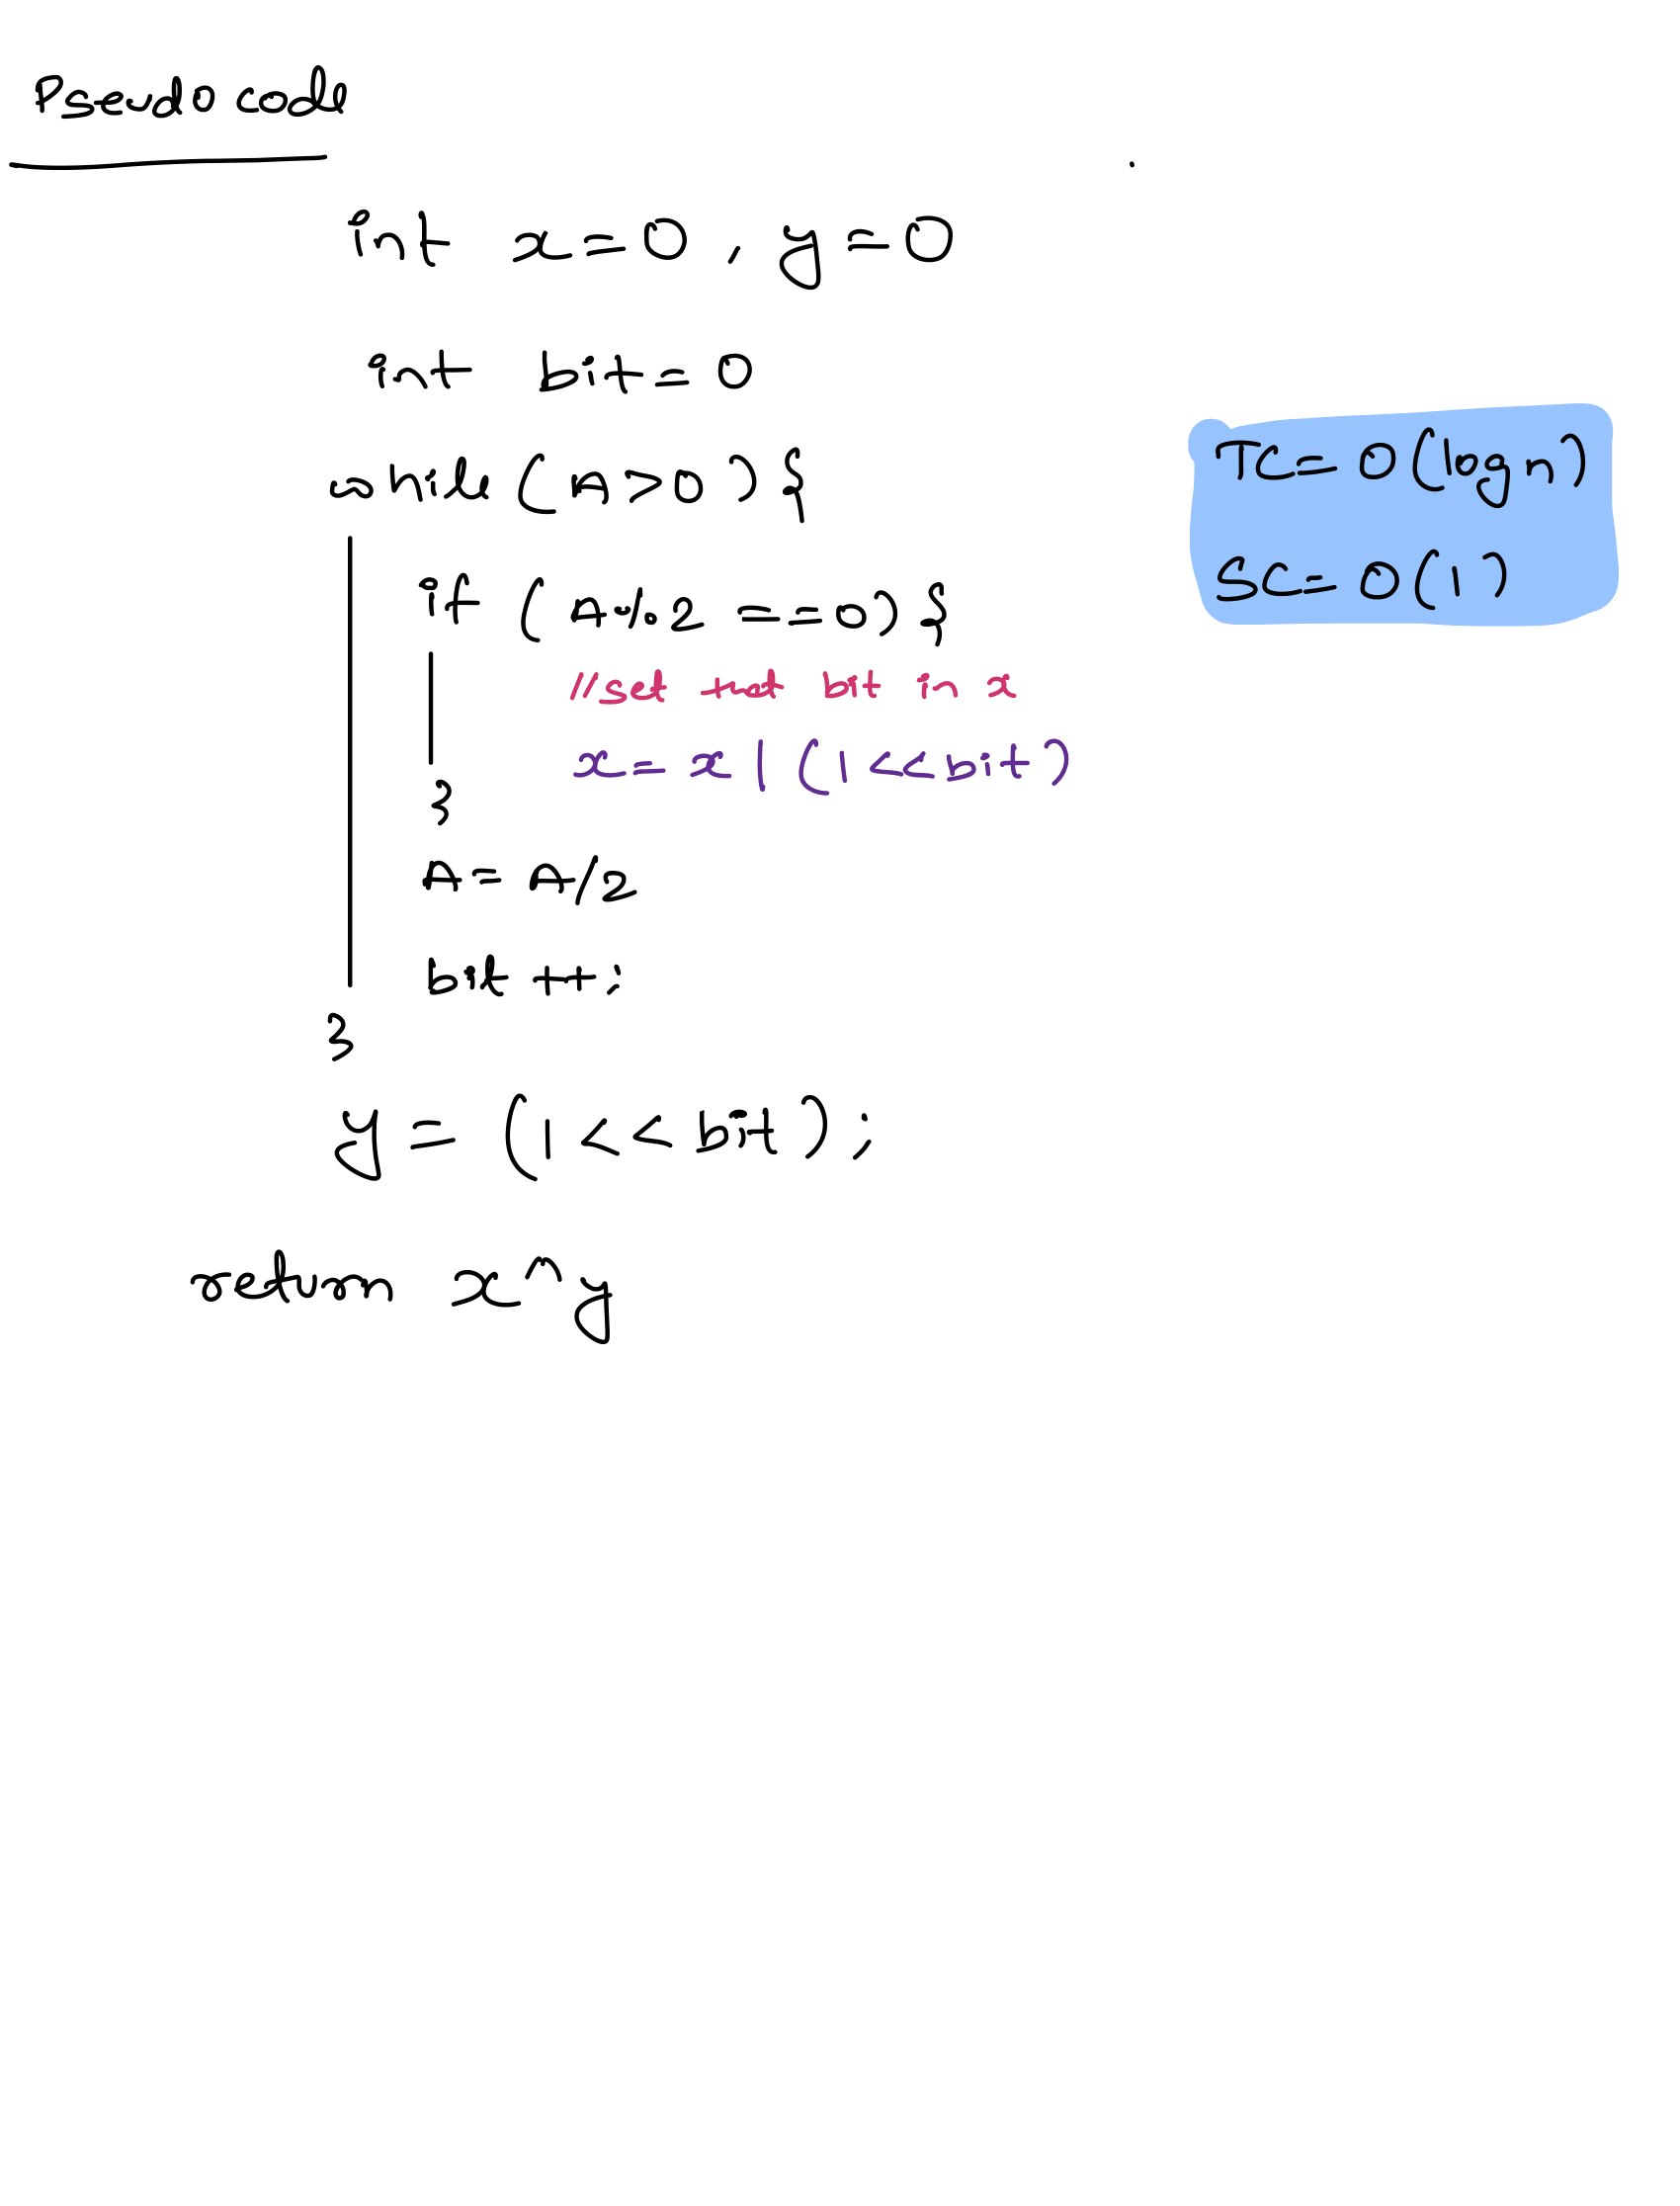 Pseudo code
int x=0 , y=0
int bit=0
while (A>0) {
if (A%2 ==0) {
//set that bit in x
x= x | (1<<bit)
}
A= A/2
bit ++;
}
y = (1<<bit);
return x^y
TC= O(log n)
SC= O(1)